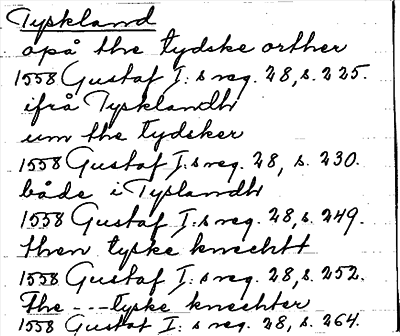 Tyskland
opå the tydske orther
1558 Gustaf I:s reg. 28, s. 225.
ifrå Tysklandh
um the tydsker
1558 Gustaf I:s reg. 28, s. 230.
både i Tyslandh
1558 Gustaf I:s reg. 28, s. 249.
then tyske knechtt
1558 Gustaf I:s reg. 28, s. 252.
The --- tyske knechter
1558 Gustaf I:s reg. 28, s. 264.